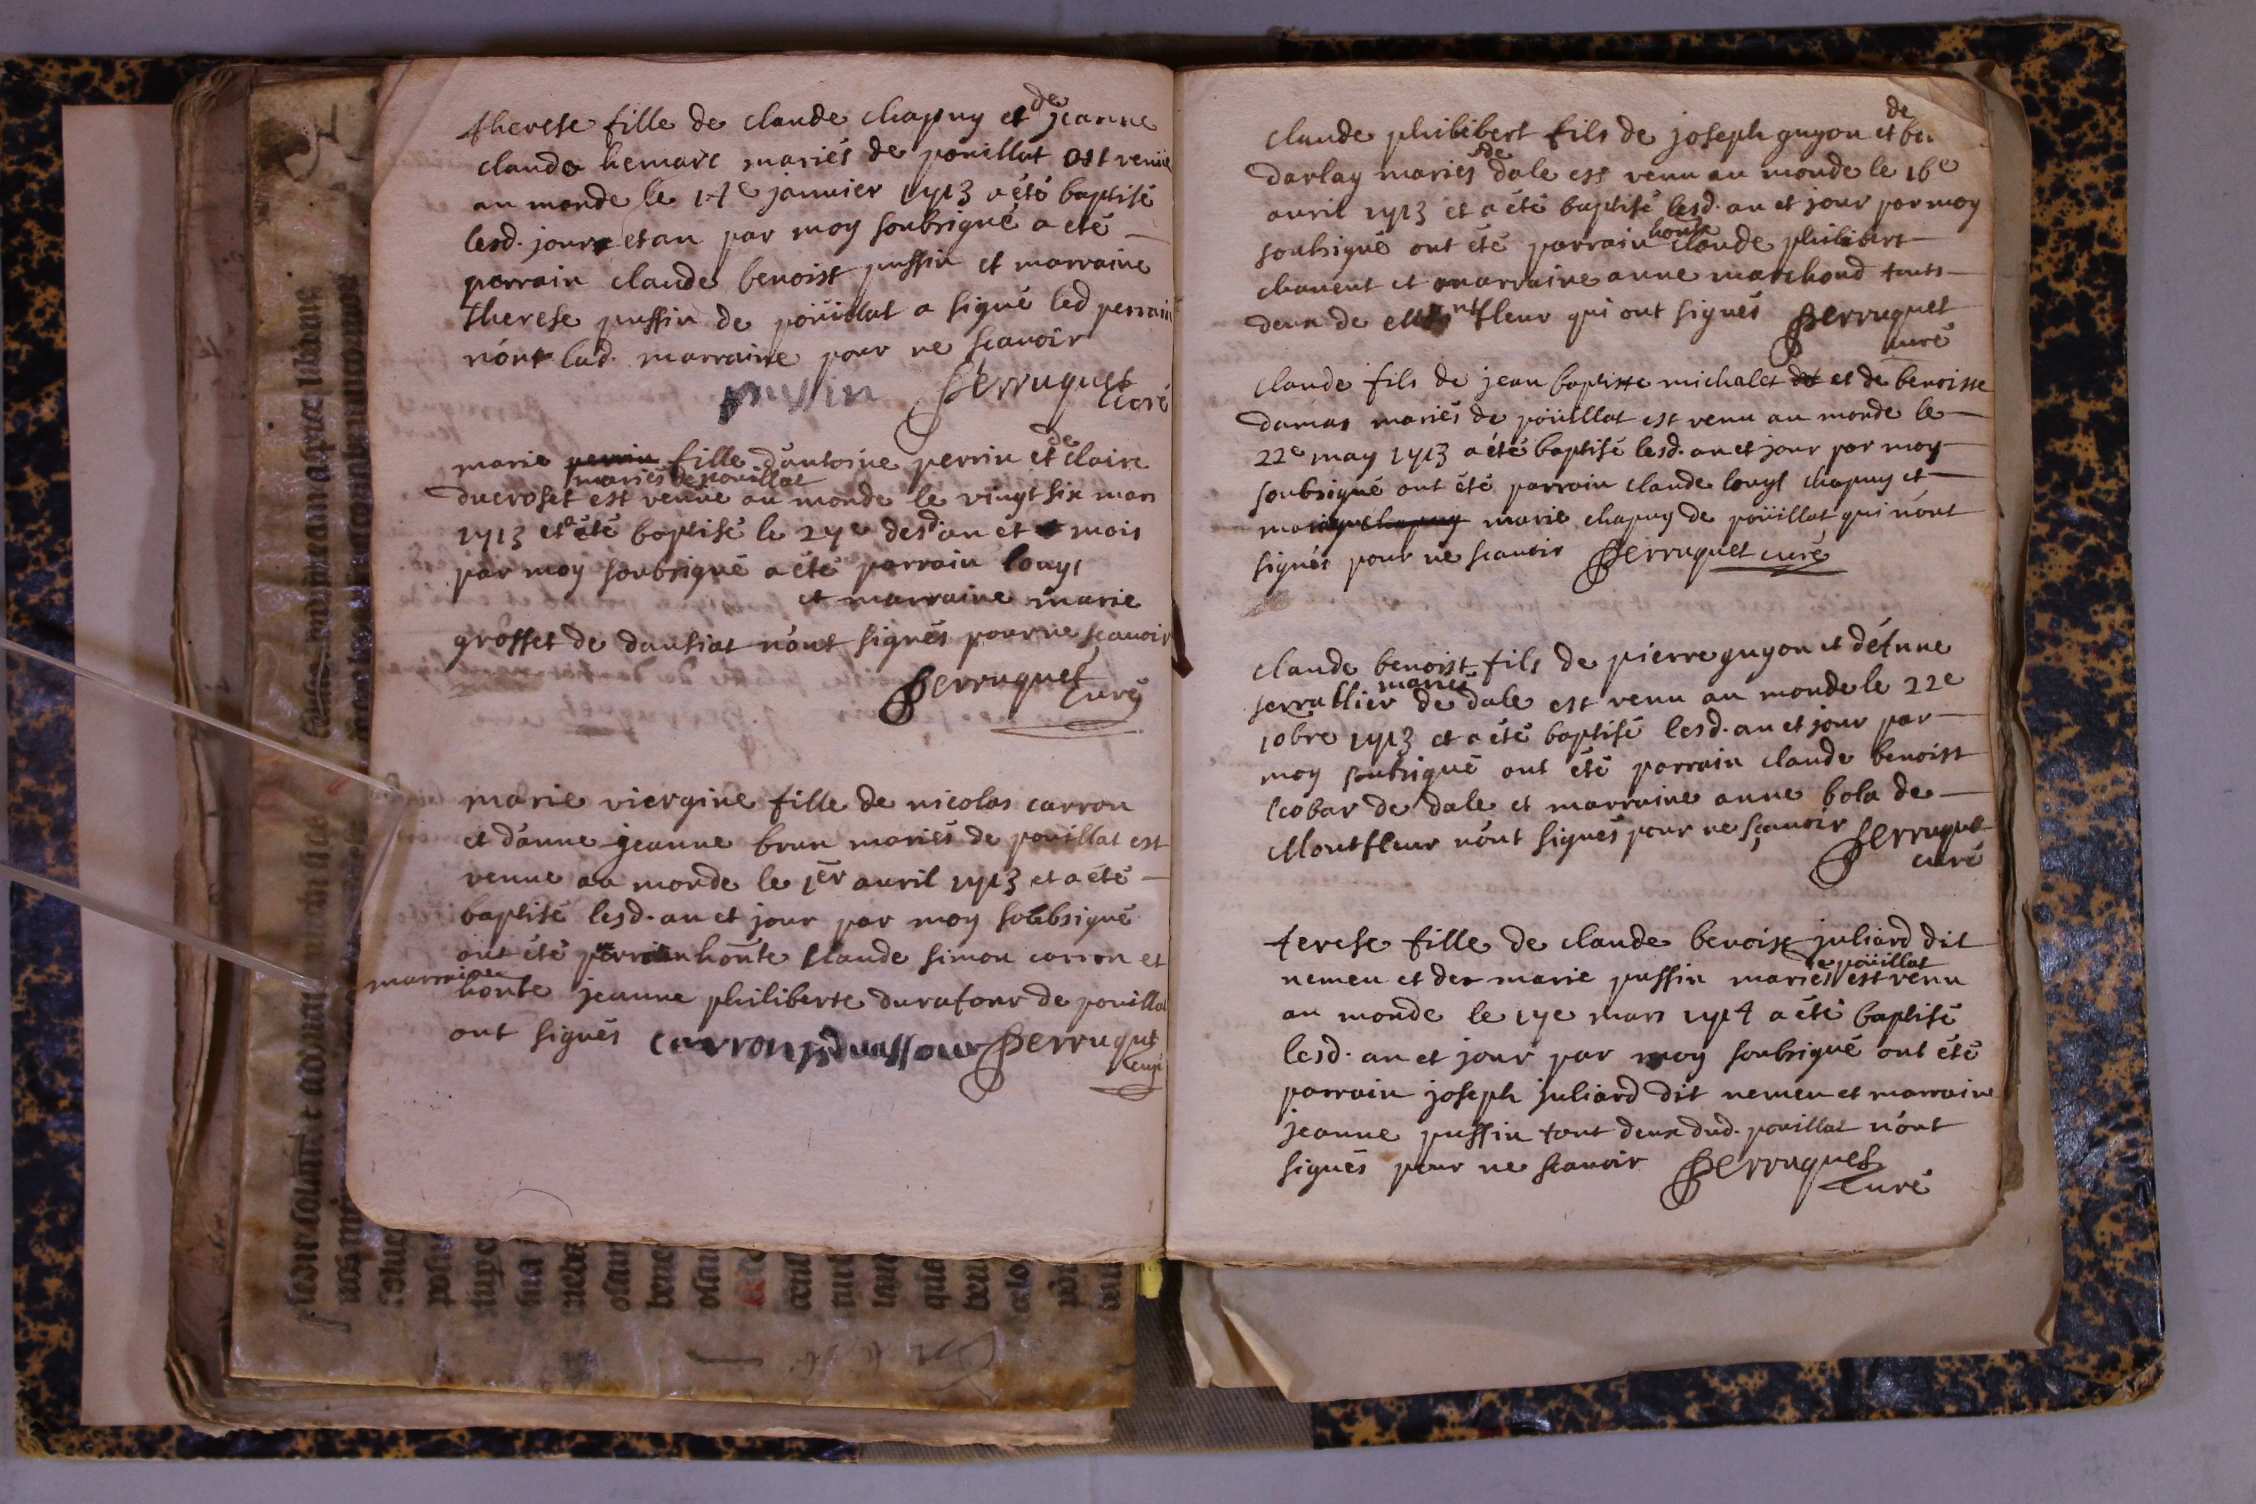 therese fille de claude chapuy et de jeanne
claude hemarc mariés de poüillat est venüe
au monde le 14e januier 1713 a été baptisé
lesd. jour et an par moy soubsigné a eté
parrain claude benoist puffin et marraine
therese puffin de poüillat a signé led perrain
nónt lad. marraine pour ne scauoir
puffin Perruquet
curé
marie perrin fille dántoine perrin et de claire
mariés de pouillat
ducroset est venue au monde le vingt six mars
1713 et a été baptisé le 27e desd an et mois
par moy soubsigné a été parrain louys
et marraine marie
grosset de dansiat nónt signés pour ne scauoir
Perruquet
curé
marie viergine fille de nicolas carron
et dánne jeanne brun mariés de pouillat est
venue au monde le 1er auril 1713 et a été
baptisé lesd. an et jour par moy soubsigné
ont été parrain honte Claude simon carron et
marraine
honte jeanne philiberte duratour de pouillat
ont signés carron Perruquet
curé
claude philibert fils de joseph guyon et de
darlay mariés de dale est venu au monde le 16e
auril 1713 et a été baptisé lesd. an et jour par moy
soubsigné ont été parrain honte claude philibert
chanent et marraine anne marchand touts
deux de fleur qui ont signés Perruquet
curé
claude fils de jean baptiste michalet et de benoiste
damas mariés de poüillat est venu au monde le
22e may 1713 a été baptisé lesd. an et jour par moy
soubsigné ont été parrain claude louys chapuy et
marie chapuy de poüillat qui nónt
signés pour ne scauoir Perruquet curé
claude benoist fils de pierre guyon et détnne
serrallier mariés de dale est venu au monde le 22e
10bre 1713 et a été baptisé lesd. an et jour par
moy soubsigné ont été parrain claude benoist
lcobar de dale et marraine anne bola de
Montfleur nónt signés pour ne sçauoir Perruquet
curé
terese fille de claude benoist juliard dit
nemeu et de marie puffin mariés de poüillat est venu
au monde le 17e mars 1714 a été baptisé
lesd. an et jour par moy soubsigné ont été
parrain joseph juliard dit nemeu et marraine
jeanne puffin tout deux dud. pouillat nónt
signés pour ne scauoir Perruquet
curé